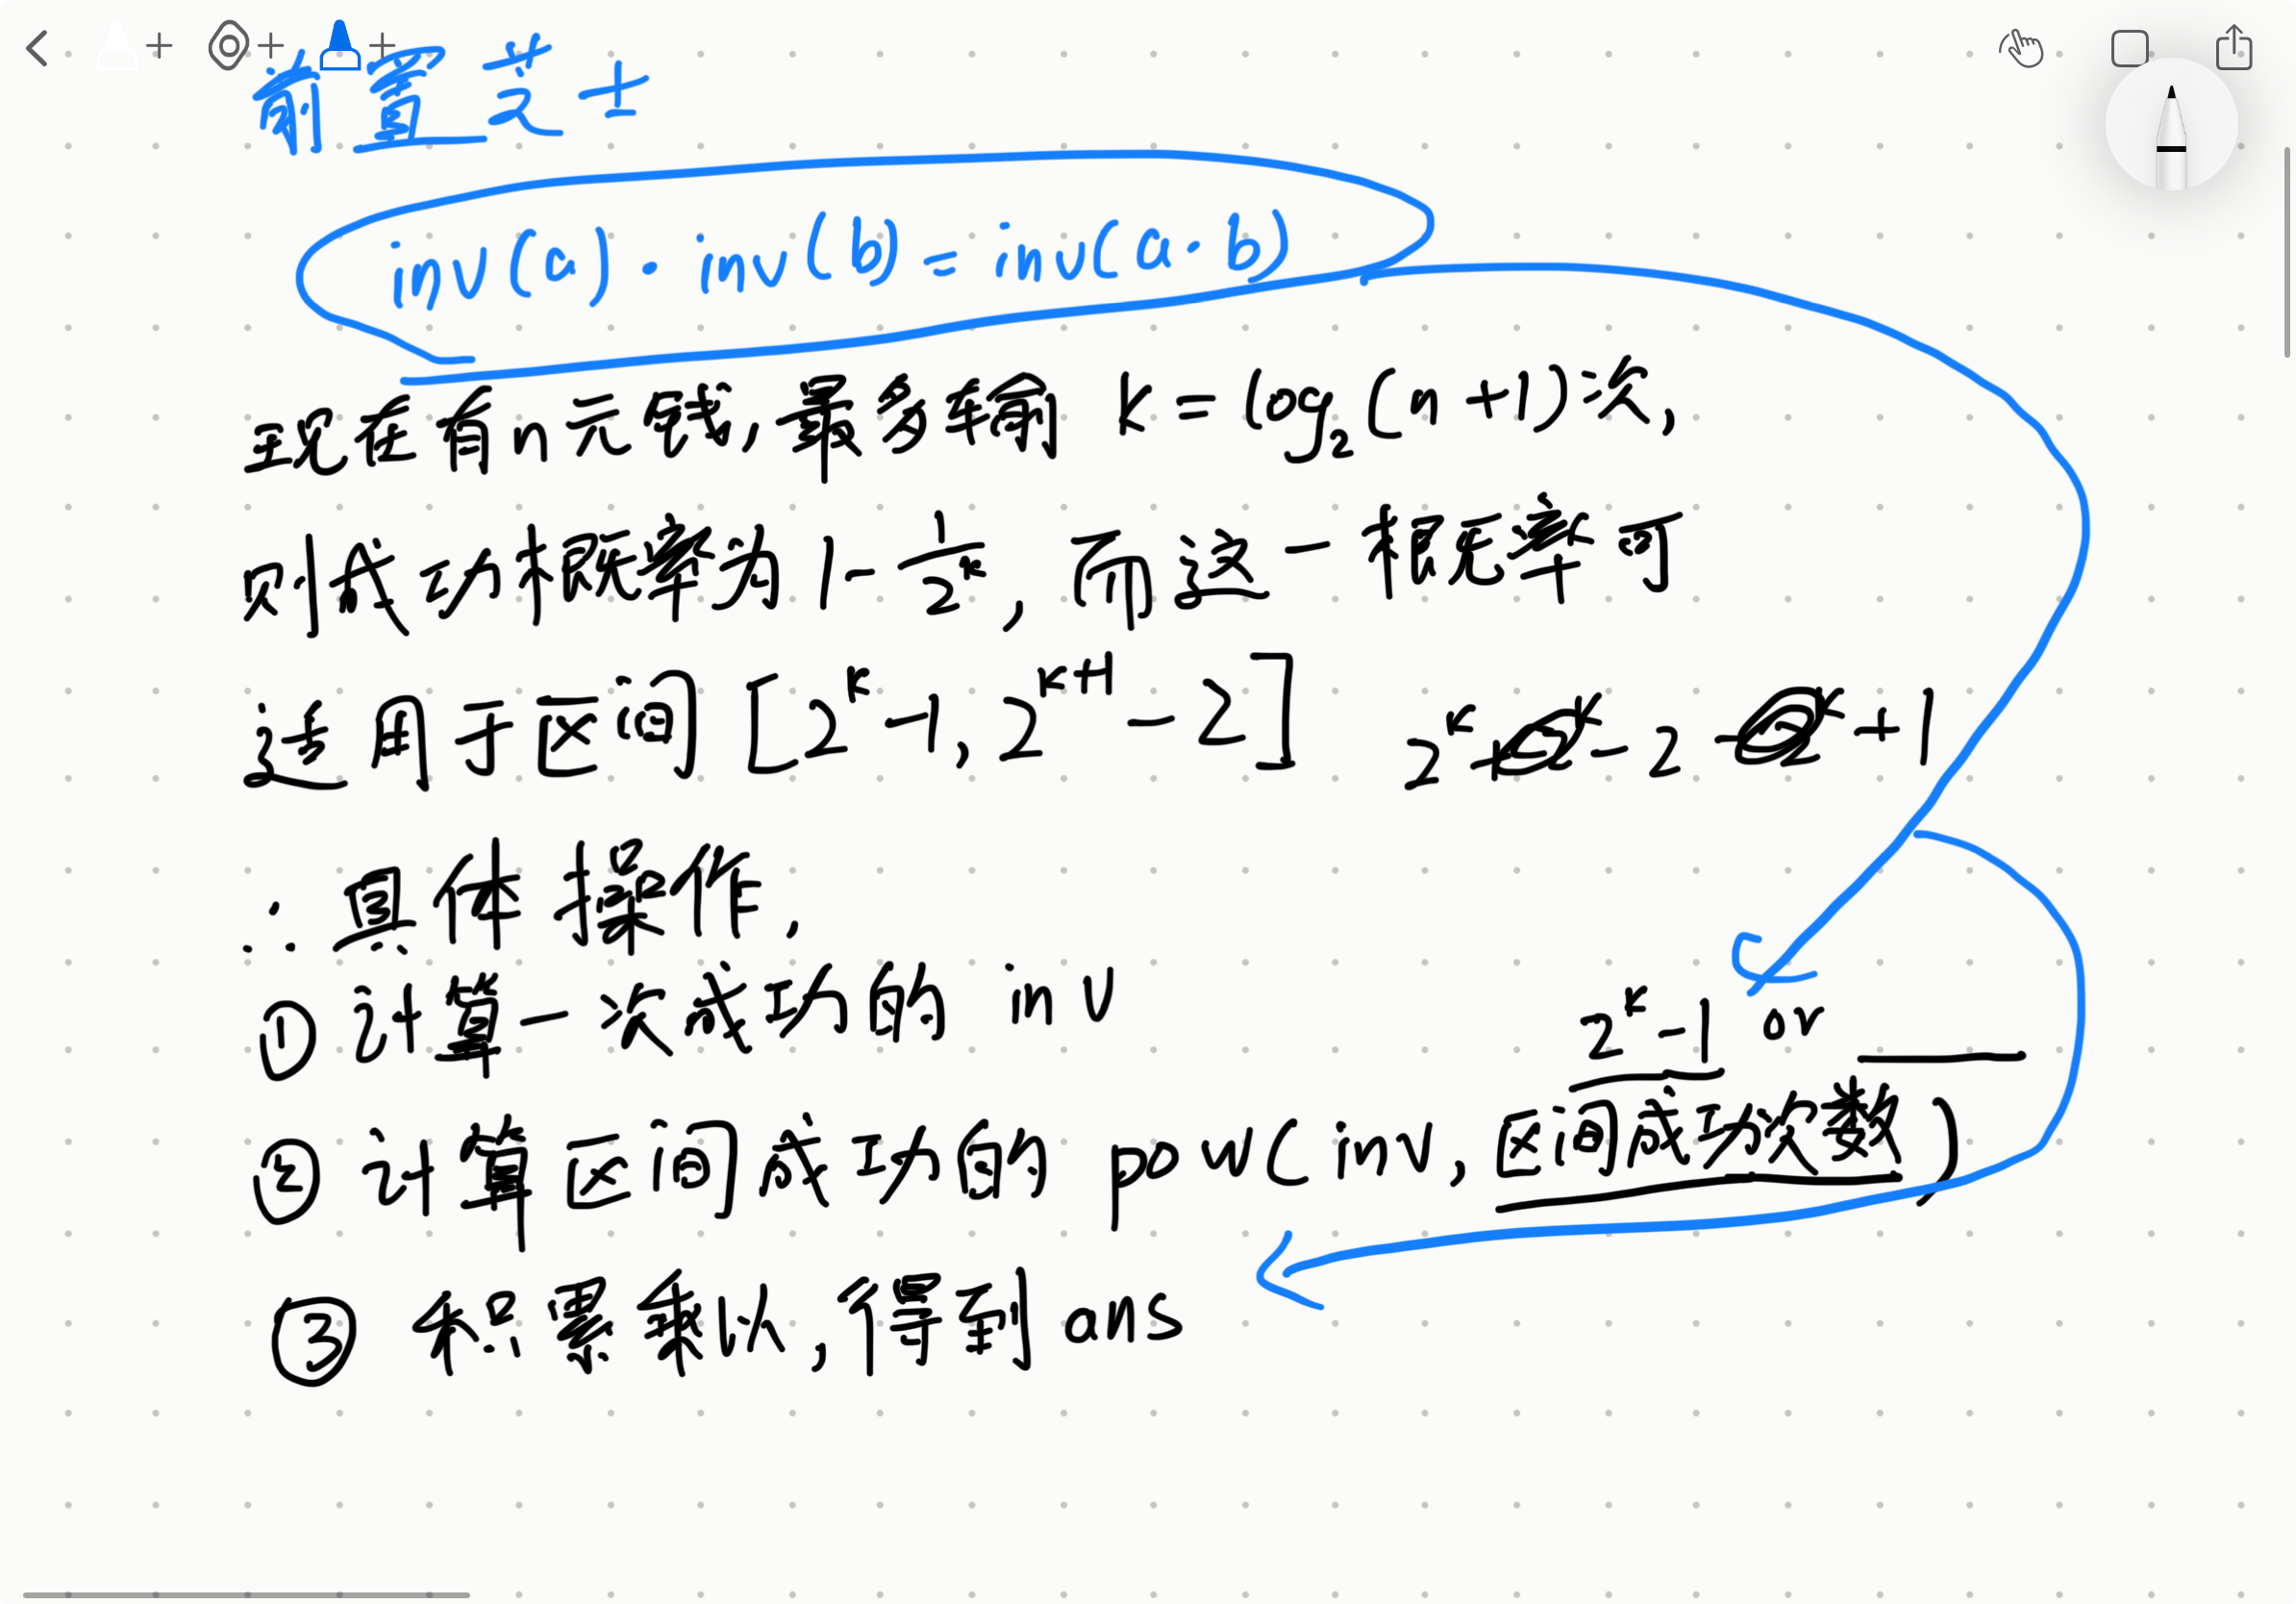 前置芝士
inv(a)·inv(b)=inv(a·b)
现在有n元钱,最多输 k=log₂(n+1)次,
则成功概率为1-1/2ᵏ,而这一概率可
适用于区间[2ᵏ-1,2ᵏ⁺¹-2] 2ᵏ+2ᵏ-2-2ᵏ+1
∴具体操作,
①计算一次成功的 inv
2ᵏ-1 or
②计算区间成功的 pow(inv,区间成功次数)
③ 积累乘以,得到ans